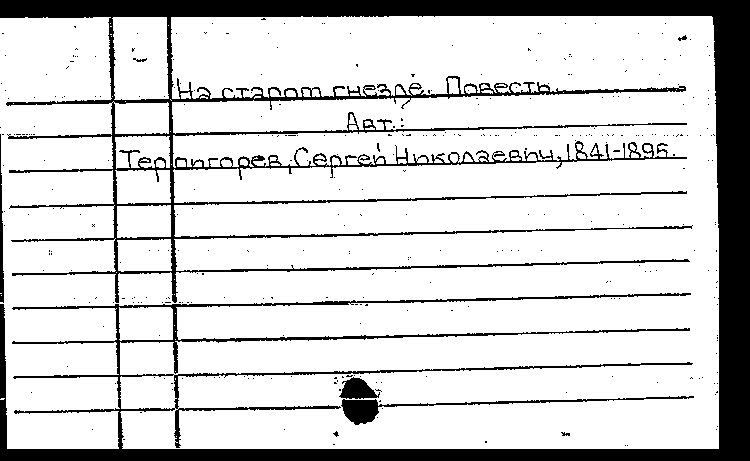 На старом гнезде. Повесть.
Авт.:
Терпигорев, Сергей Николаевич, 1841-1895.